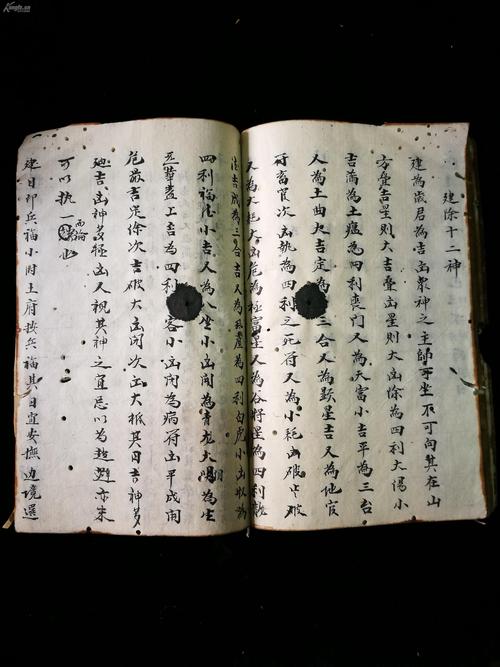 建除十二神
建為歲君為吉凶衆神之主帥可坐不可向其在山
方疊吉星則大吉疊凶星則大凶除為四利太陽小
吉滿為土瘟為四利喪門又為天富小吉平為三台
又為土曲大吉定為三合又為顯星吉又為地官
符畜官次凶執為四利之死符又為小耗凶破
又為大耗大凶危為極富星又為谷將星為四利龍
德吉成為三合吉又為為四利白虎小凶收為
四利福德小吉又為八坐小凶開為青龍太陽為生
華蓋上吉為四利客小凶閉為病符凶平成開
危最吉定除次吉破大凶閉次凶大抵其日吉神多
則吉凶神多極凶又視其神之宜忌以為趨避亦未
可以执一而論也
建日即兵福小时土府按兵福其日宜安撫边境選
Kongfz.cn